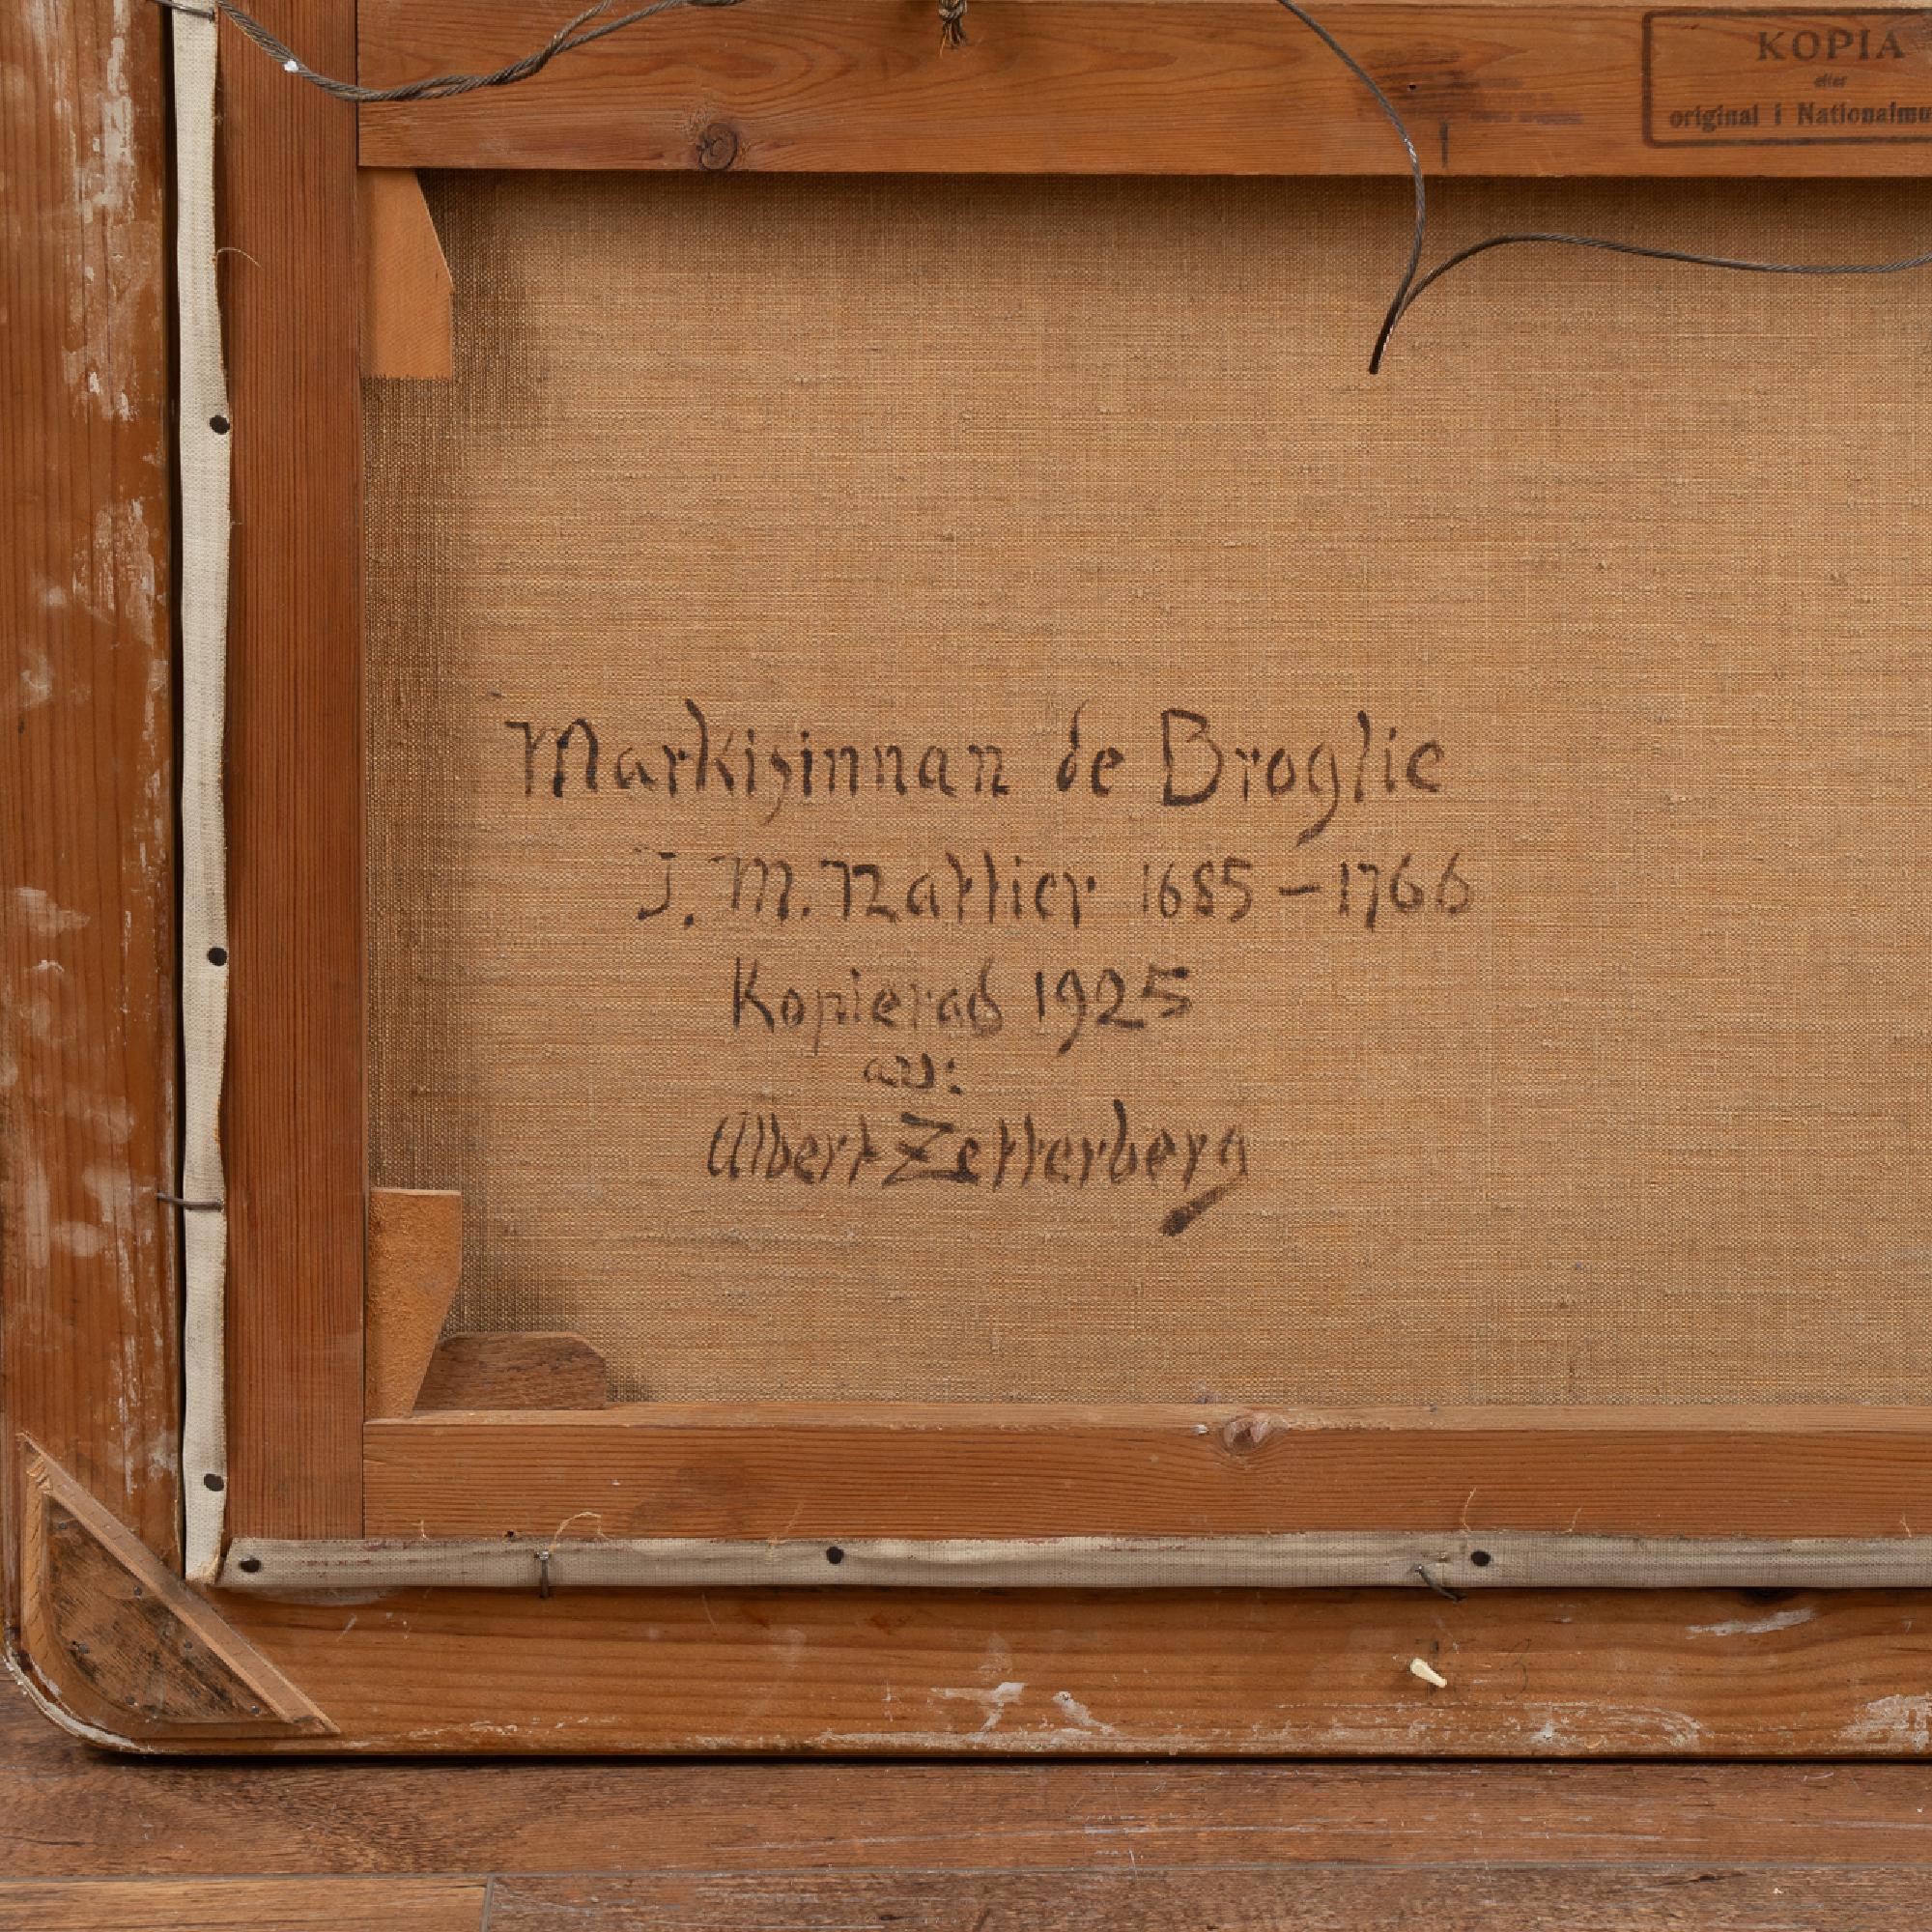 KOPIA
efter
original i
Markisinnan de Broglie
J. M. Nattier 1685 – 1766
Kopierad 1925
av:
Albert Zetterberg